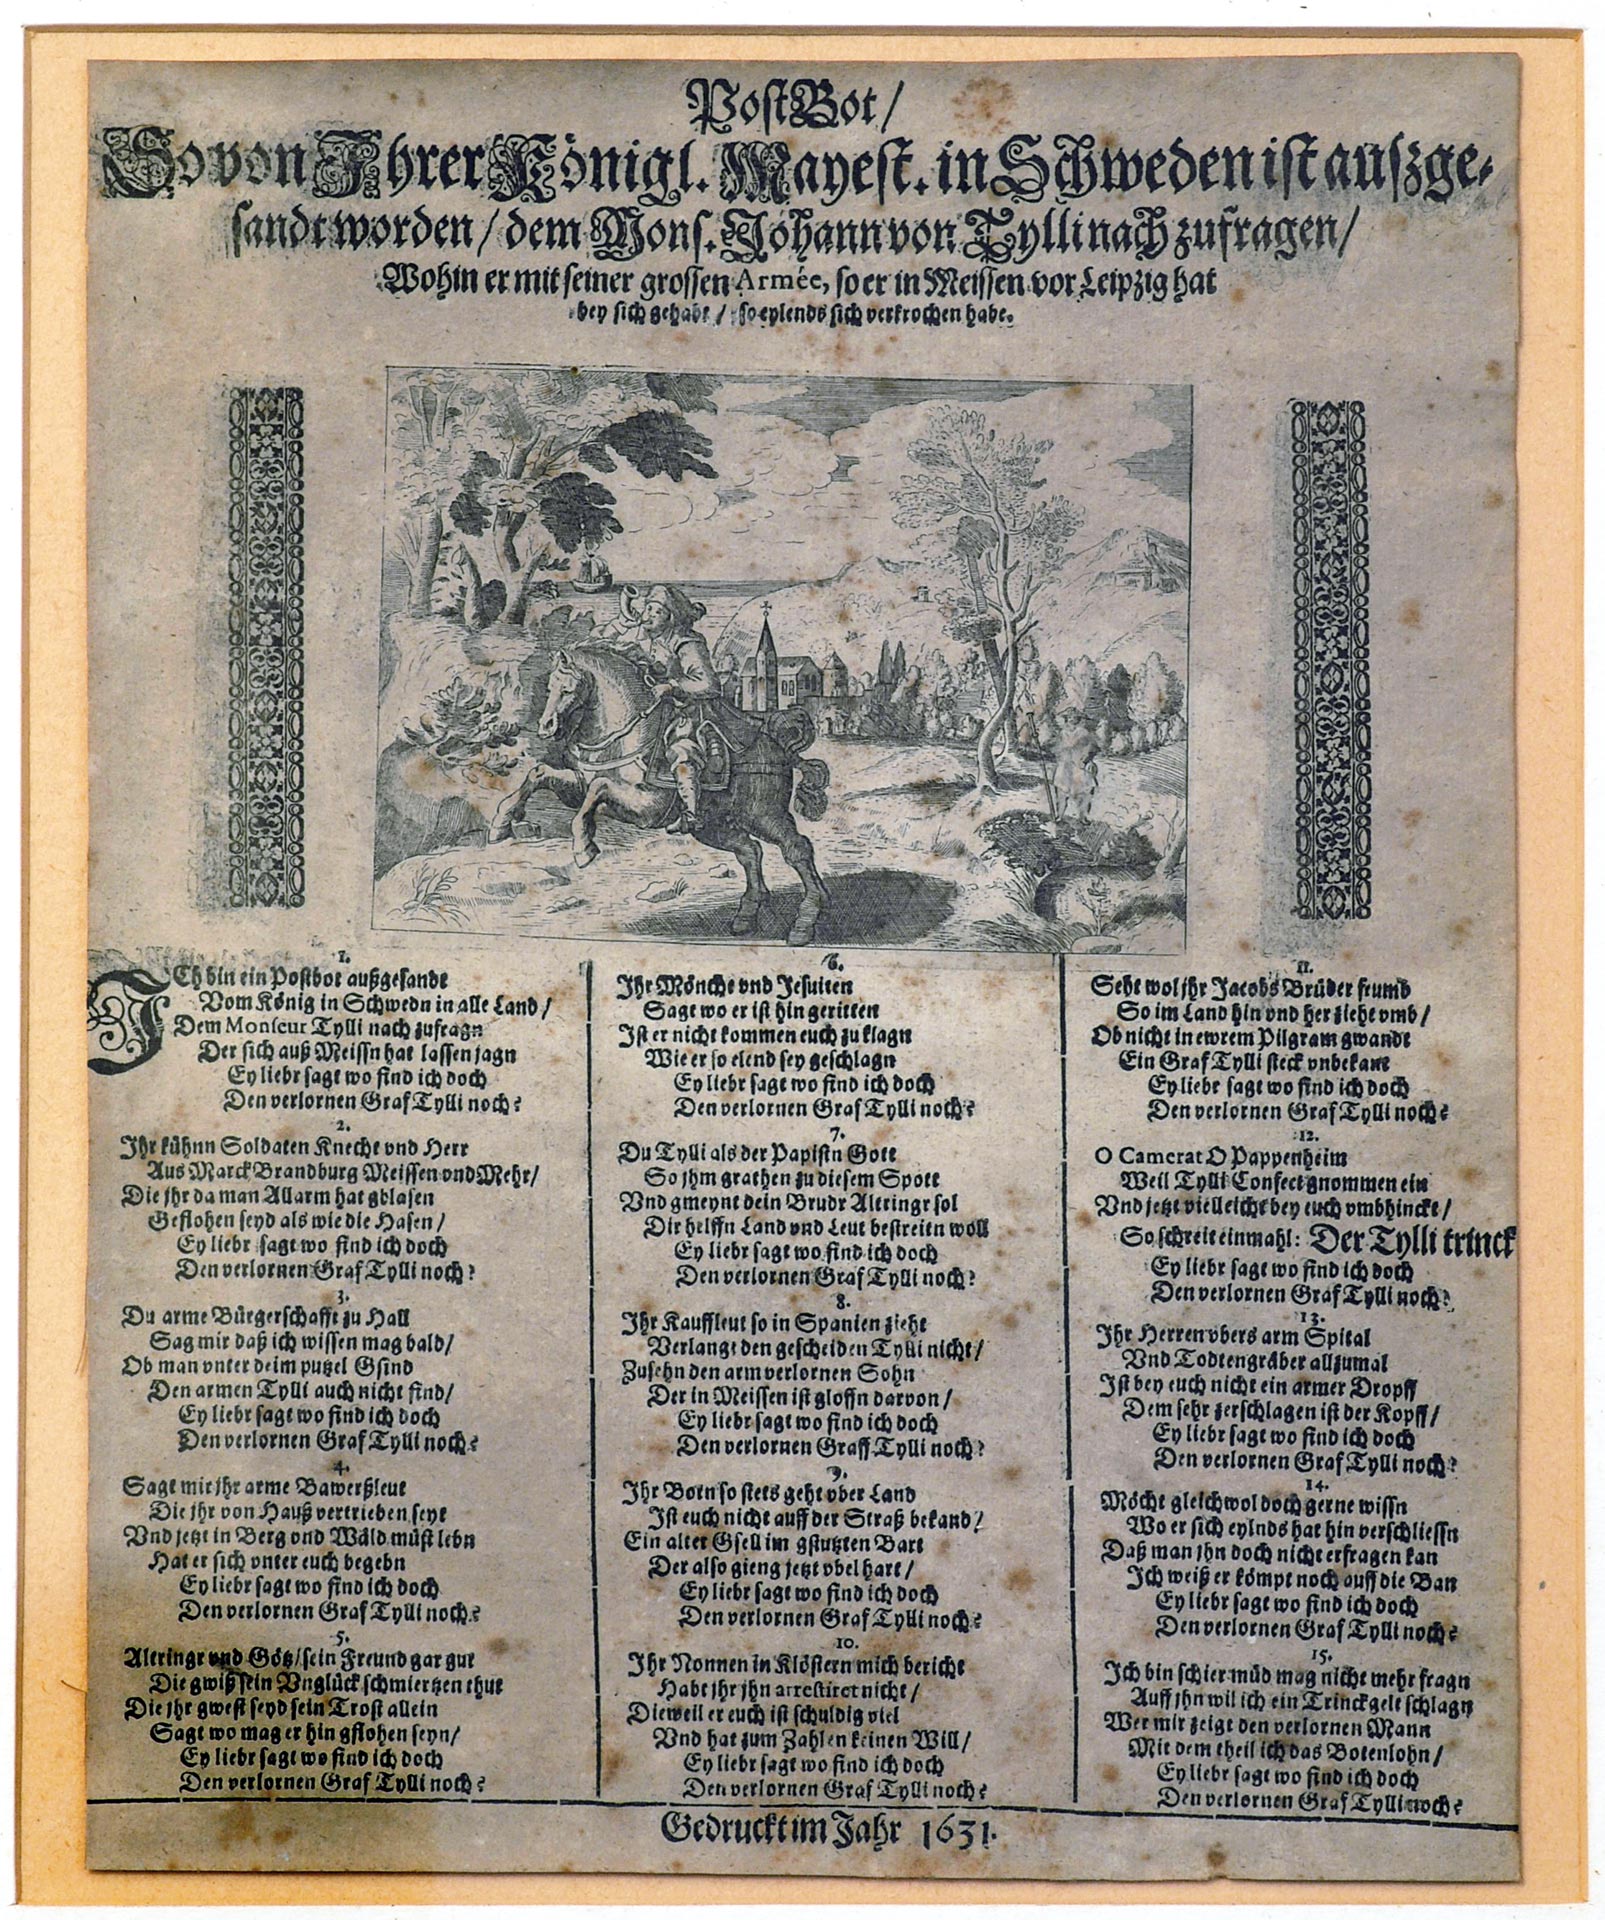 PostBot/
So von Ihrer Königl. Mayest. in Schweden ist auszge-
sandt worden/ dem Mons. Johann von Tylli nach zufragen/
Wohin er mit seiner grossen Armée, so er in Meissen vor Leipzig hat
bey sich gehabt/ so eylends sich verkrochen habe.
1.
ICh bin ein Postbot außgesandt
Vom König in Schwedn in alle Land/
Dem Monsieur Tylli nach zufragn
Der sich auß Meissn hat lassen jagn
Ey liebr sagt wo find ich doch
Den verlornen Graf Tylli noch?
2.
Ihr kühnn Soldaten Knecht vnd Herr
Aus Marck Brandburg Meissen vnd Mehr/
Die jhr da man Allarm hat gblasen
Geflohen seyd als wie die Hasen/
Ey liebr sagt wo find ich doch
Den verlornen Graf Tylli noch?
3.
Du arme Bürgerschafft zu Hall
Sag mir daß ich wissen mag bald/
Ob man vnter deim putzel Gsind
Den armen Tylli auch nicht find/
Ey liebr sagt wo find ich doch
Den verlornen Graf Tylli noch?
4.
Sagt mir jhr arme Bawerßleut
Die jhr von Hauß vertrieben seyt
Vnd jetzt in Berg vnd Wäld müst lebn
Hat er sich vnter euch begebn
Ey liebr sagt wo find ich doch
Den verlornen Graf Tylli noch?
5.
Altringr vnd Götz/ sein Freund gar gut
Die gwiß sein Vnglück schmiertzen thut
Die jhr gwest seyd sein Trost allein
Sagt wo mag er hin gflohen seyn/
Ey liebr sagt wo find ich doch
Den verlornen Graf Tylli noch?
6.
Ihr Mönche vnd Jesuiten
Sagt wo er ist hin geritten
Ist er nicht kommen euch zu klagn
Wie er so elend sey geschlagn
Ey liebr sagt wo find ich doch
Den verlornen Graf Tylli noch?
7.
Du Tylli als der Papistn Gott
So jhm grathen zu diesem Spott
Vnd gmeynt dein Brudr Altringr sol
Dir helffn Land vnd Leut bestreiten woll
Ey liebr sagt wo find ich doch
Den verlornen Graf Tylli noch?
8.
Ihr Kauffleut so in Spanien zieht
Verlangt den gescheiden Tylli nicht/
Zusehn den arm verlornen Sohn
Der in Meissen ist gloffn darvon/
Ey liebr sagt wo find ich doch
Den verlornen Graff Tylli noch?
9.
Ihr Botn so stets geht vber Land
Ist euch nicht auff der Straß bekand/
Ein alter Gsell im gstutzten Bart
Der also gieng jetzt vbel hart/
Ey liebr sagt wo find ich doch
Den verlornen Graf Tylli noch?
10.
Ihr Nonnen in Klöstern mich bericht
Habt jhr jhn arrestiret nicht/
Dieweil er euch ist schuldig viel
Vnd hat zum Zahlen keinen Will/
Ey liebr sagt wo find ich doch
Den verlornen Graf Tylli noch?
11.
Seht wol jhr Jacobs Brüder frumb
So im Land hin vnd her zieht vmb/
Ob nicht in ewrem Pilgram gwandt
Ein Graf Tylli steck vnbekant
Ey liebr sagt wo find ich doch
Den verlornen Graf Tylli noch?
12.
O Camerat O Pappenheim
Weil Tylli Confect gnommen ein
Vnd jetzt vielleicht bey euch vmbhinckt/
So schreit einmahl: Der Tylli trinckt
Ey liebr sagt wo find ich doch
Den verlornen Graf Tylli noch?
13.
Ihr Herren vbers arm Spital
Vnd Todtengräber allzumal
Ist bey euch nicht ein armer Dropff
Dem sehr zerschlagen ist der Kopff/
Ey liebr sagt wo find ich doch
Den verlornen Graf Tylli noch?
14.
Möcht gleichwol doch gerne wissn
Wo er sich eylnds hat hin verschliessn
Daß man jhn doch nicht erfragen kan
Ich weiß er kömpt noch auff die Ban
Ey liebr sagt wo find ich doch
Den verlornen Graf Tylli noch?
15.
Ich bin schier müd mag nicht mehr fragn
Auff jhn wil ich ein Trinckgelt schlagn
Wer mir zeigt den verlornen Mann
Mit dem theil ich das Botenlohn/
Ey liebr sagt wo find ich doch
Den verlornen Graf Tylli noch?
Gedruckt im Jahr 1631.